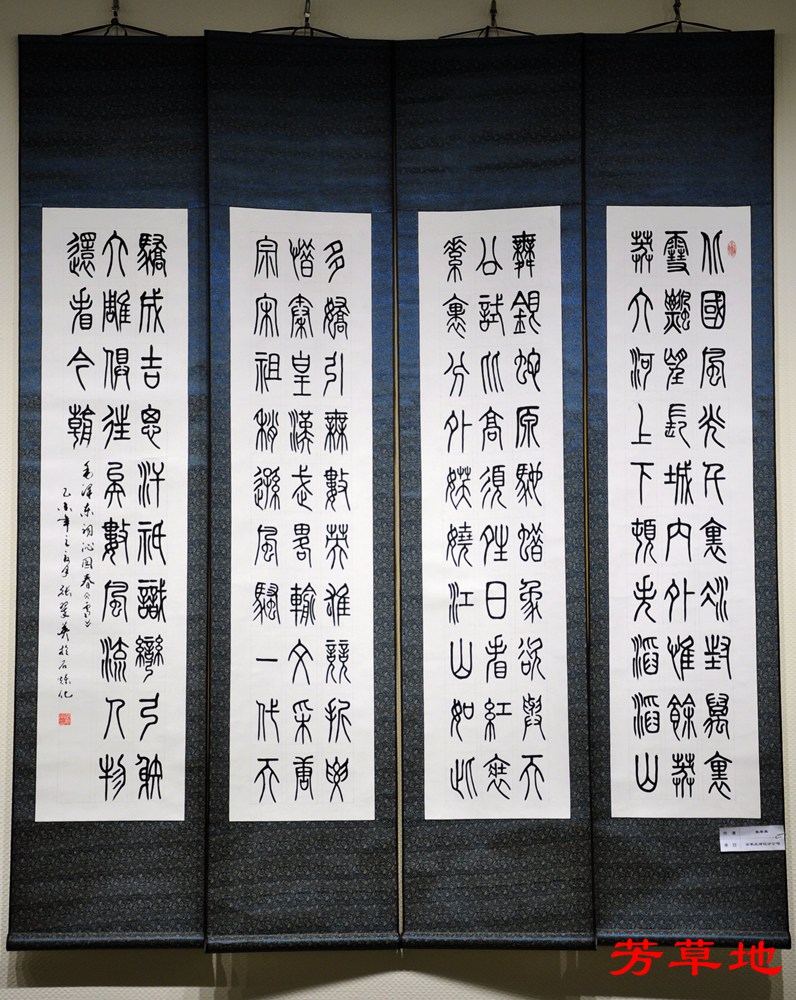 北國風光千裏冰封萬裏
雪飄望長城內外惟餘莽
莽大河上下頓失滔滔山
舞銀蛇原馳蠟象欲與天
公試比高須晴日看紅裝
素裹分外妖嬈江山如此
多嬌引無數英雄競折腰
惜秦皇漢武略輸文采唐
宗宋祖稍遜風騷一代天
驕成吉思汗祇識彎弓射
大雕俱往矣數風流人物
還看今朝
毛泽东词沁园春《雪》
乙未年 於石炼化
芳草地